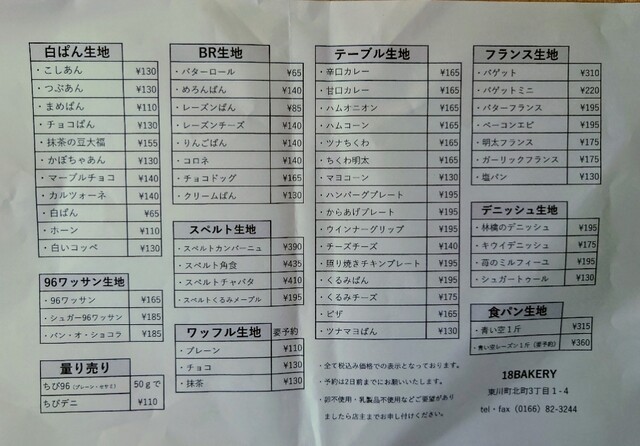 白ぱん生地
・こしあん ¥130
・つぶあん ¥130
・まめぱん ¥110
・チョコぱん ¥130
・抹茶の豆大福 ¥155
・かぼちゃあん ¥130
・マーブルチョコ ¥140
・カルツォーネ ¥140
・白ぱん ¥65
・ホーン ¥110
・白いコッペ ¥130
96ワッサン生地
・96ワッサン ¥165
・シュガー96ワッサン ¥185
・パン・オ・ショコラ ¥185
量り売り
ちび96（プレーン・セサミ） 50gで
ちびデニ ¥110
BR生地
・バターロール ¥65
・めろんぱん ¥140
・レーズンぱん ¥85
・レーズンチーズ ¥140
・りんごぱん ¥140
・コロネ ¥140
・チョコドッグ ¥165
・クリームぱん ¥130
スペルト生地
・スペルトカンパーニュ ¥390
・スペルト角食 ¥435
・スペルトチャバタ ¥410
・スペルトくるみメープル ¥195
ワッフル生地 要予約
・プレーン ¥110
・チョコ ¥130
・抹茶 ¥130
テーブル生地
・辛口カレー ¥165
・甘口カレー ¥165
・ハムオニオン ¥165
・ハムコーン ¥165
・ツナちくわ ¥165
・ちくわ明太 ¥165
・マヨコーン ¥130
・ハンバーグプレート ¥195
・からあげプレート ¥195
・ウインナーグリップ ¥195
・チーズチーズ ¥140
・照り焼きチキンプレート ¥195
・くるみぱん ¥195
・くるみチーズ ¥175
・ピザ ¥165
・ツナマヨぱん ¥130
・全て税込み価格での表示となっております。
・予約は2日前までにお願いいたします。
・卵不使用・乳製品不使用などご要望があり
ましたら店主までお申し付けください。
フランス生地
・バゲット ¥310
・バゲットミニ ¥220
・バターフランス ¥195
・ベーコンエピ ¥195
・明太フランス ¥175
・ガーリックフランス ¥175
・塩パン ¥130
デニッシュ生地
・林檎のデニッシュ ¥195
・キウイデニッシュ ¥175
・苺のミルフィーユ ¥195
・シュガートゥール ¥130
食パン生地
・青い空1斤 ¥315
・青い空レーズン1斤（要予約） ¥360
18BAKERY
東川町北町3丁目1-4
tel・fax（0166）82-3244